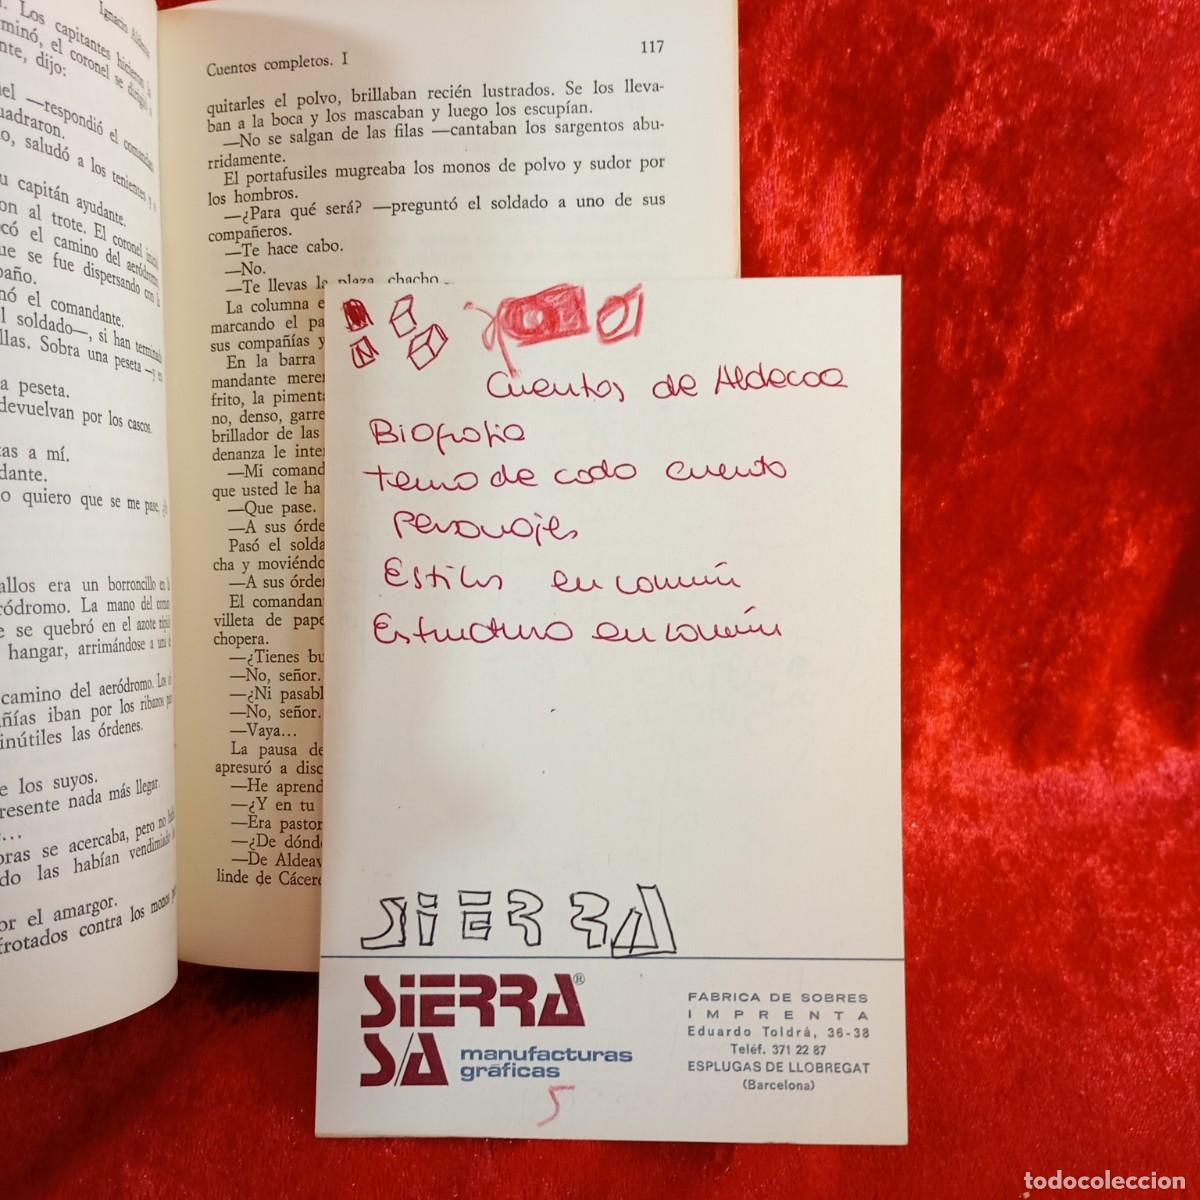 Ignacio Aldecoa
. Los capitanes hicieron la
minó, el coronel se dirigió a
nte, dijo:
el —respondió el comandante
uadraron.
o, saludó a los tenientes y a
u capitán ayudante.
on al trote. El coronel
có el camino del aeródromo
ue se fue dispersando con la
paño.
nó el comandante.
l soldado—, si han terminado
llas. Sobra una peseta —y en
a peseta.
devuelvan por los cascos.
tas a mí.
dante.
o quiero que se me pase, ¿
allos era un borroncillo en la
ródromo. La mano del
e se quebró en el azote
hangar, arrimándose a una
camino del aeródromo. Los
ñías iban por los ribazos
inútiles las órdenes.
e los suyos.
resente nada más llegar.
…
oras se acercaba, pero no
do las habían vendimiado
or el amargor.
frotados contra los monos
Cuentos completos. I
117
quitarles el polvo, brillaban recién lustrados. Se los lleva-
ban a la boca y los mascaban y luego los escupían.
—No se salgan de las filas —cantaban los sargentos abu-
rridamente.
El portafusiles mugreaba los monos de polvo y sudor por
los hombros.
—¿Para qué será? —preguntó el soldado a uno de sus
compañeros.
—Te hace cabo.
—No.
—Te llevas la plaza, chacho
La columna e
marcando el pa
sus compañías y
En la barra
mandante mere
frito, la pimenta
no, denso, garre
brillador de las
denanza le inte
—Mi comand
que usted le ha
—Que pase.
—A sus órde
Pasó el solda
cha y moviéndo
—A sus órde
El comandan
villeta de pape
chopera.
—¿Tienes bu
—No, señor.
—¿Ni pasabl
—No, señor.
—Vaya...
La pausa de
apresuró a disc
—He aprend
—¿Y en tu
—Era pastor
—¿De dónde
—De Aldeav
linde de Cácere
Cuentos de Aldecoa
Biografia
tema de cada cuento
Personajes
Estilos en común
Estructura en común
SiERRA
SiERRA®
S/A
manufacturas
gráficas
5
FABRICA DE SOBRES
IMPRENTA
Eduardo Toldrá, 36-38
Teléf. 371 22 87
ESPLUGAS DE LLOBREGAT
(Barcelona)
todocoleccion